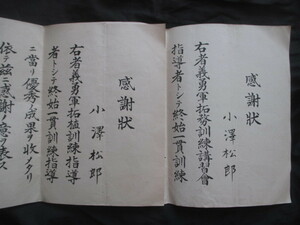 感謝狀
小澤松郎
右者義勇軍拓務訓練講習會
指導者トシテ終始一貫訓練
感謝狀
小澤松郎
右者義勇軍拓植訓練指導
者トシテ終始一貫訓練指導
ニ當リ優秀ノ成果ヲ收メタリ
依テ茲ニ感謝ノ意ヲ表ス